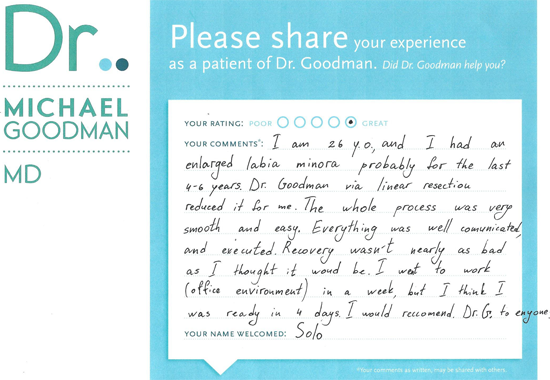 Dr.
MICHAEL
GOODMAN
MD
Please share your experience
as a patient of Dr. Goodman. Did Dr. Goodman help you?
YOUR RATING: POOR GREAT
YOUR COMMENTS*: I am 26 y.o., and I had an
enlarged labia minora probably for the last
4-6 years. Dr. Goodman via linear resection
reduced it for me. The whole process was very
smooth and easy. Everything was well comunicated,
and executed. Recovery wasn't nearly as bad
as I thought it woud be. I went to work
(office environment) in a week, but I think I
was ready in 4 days. I would reccomend. Dr.G. to enyone.
YOUR NAME WELCOMED: Solo
*Your comments as written, may be shared with others.